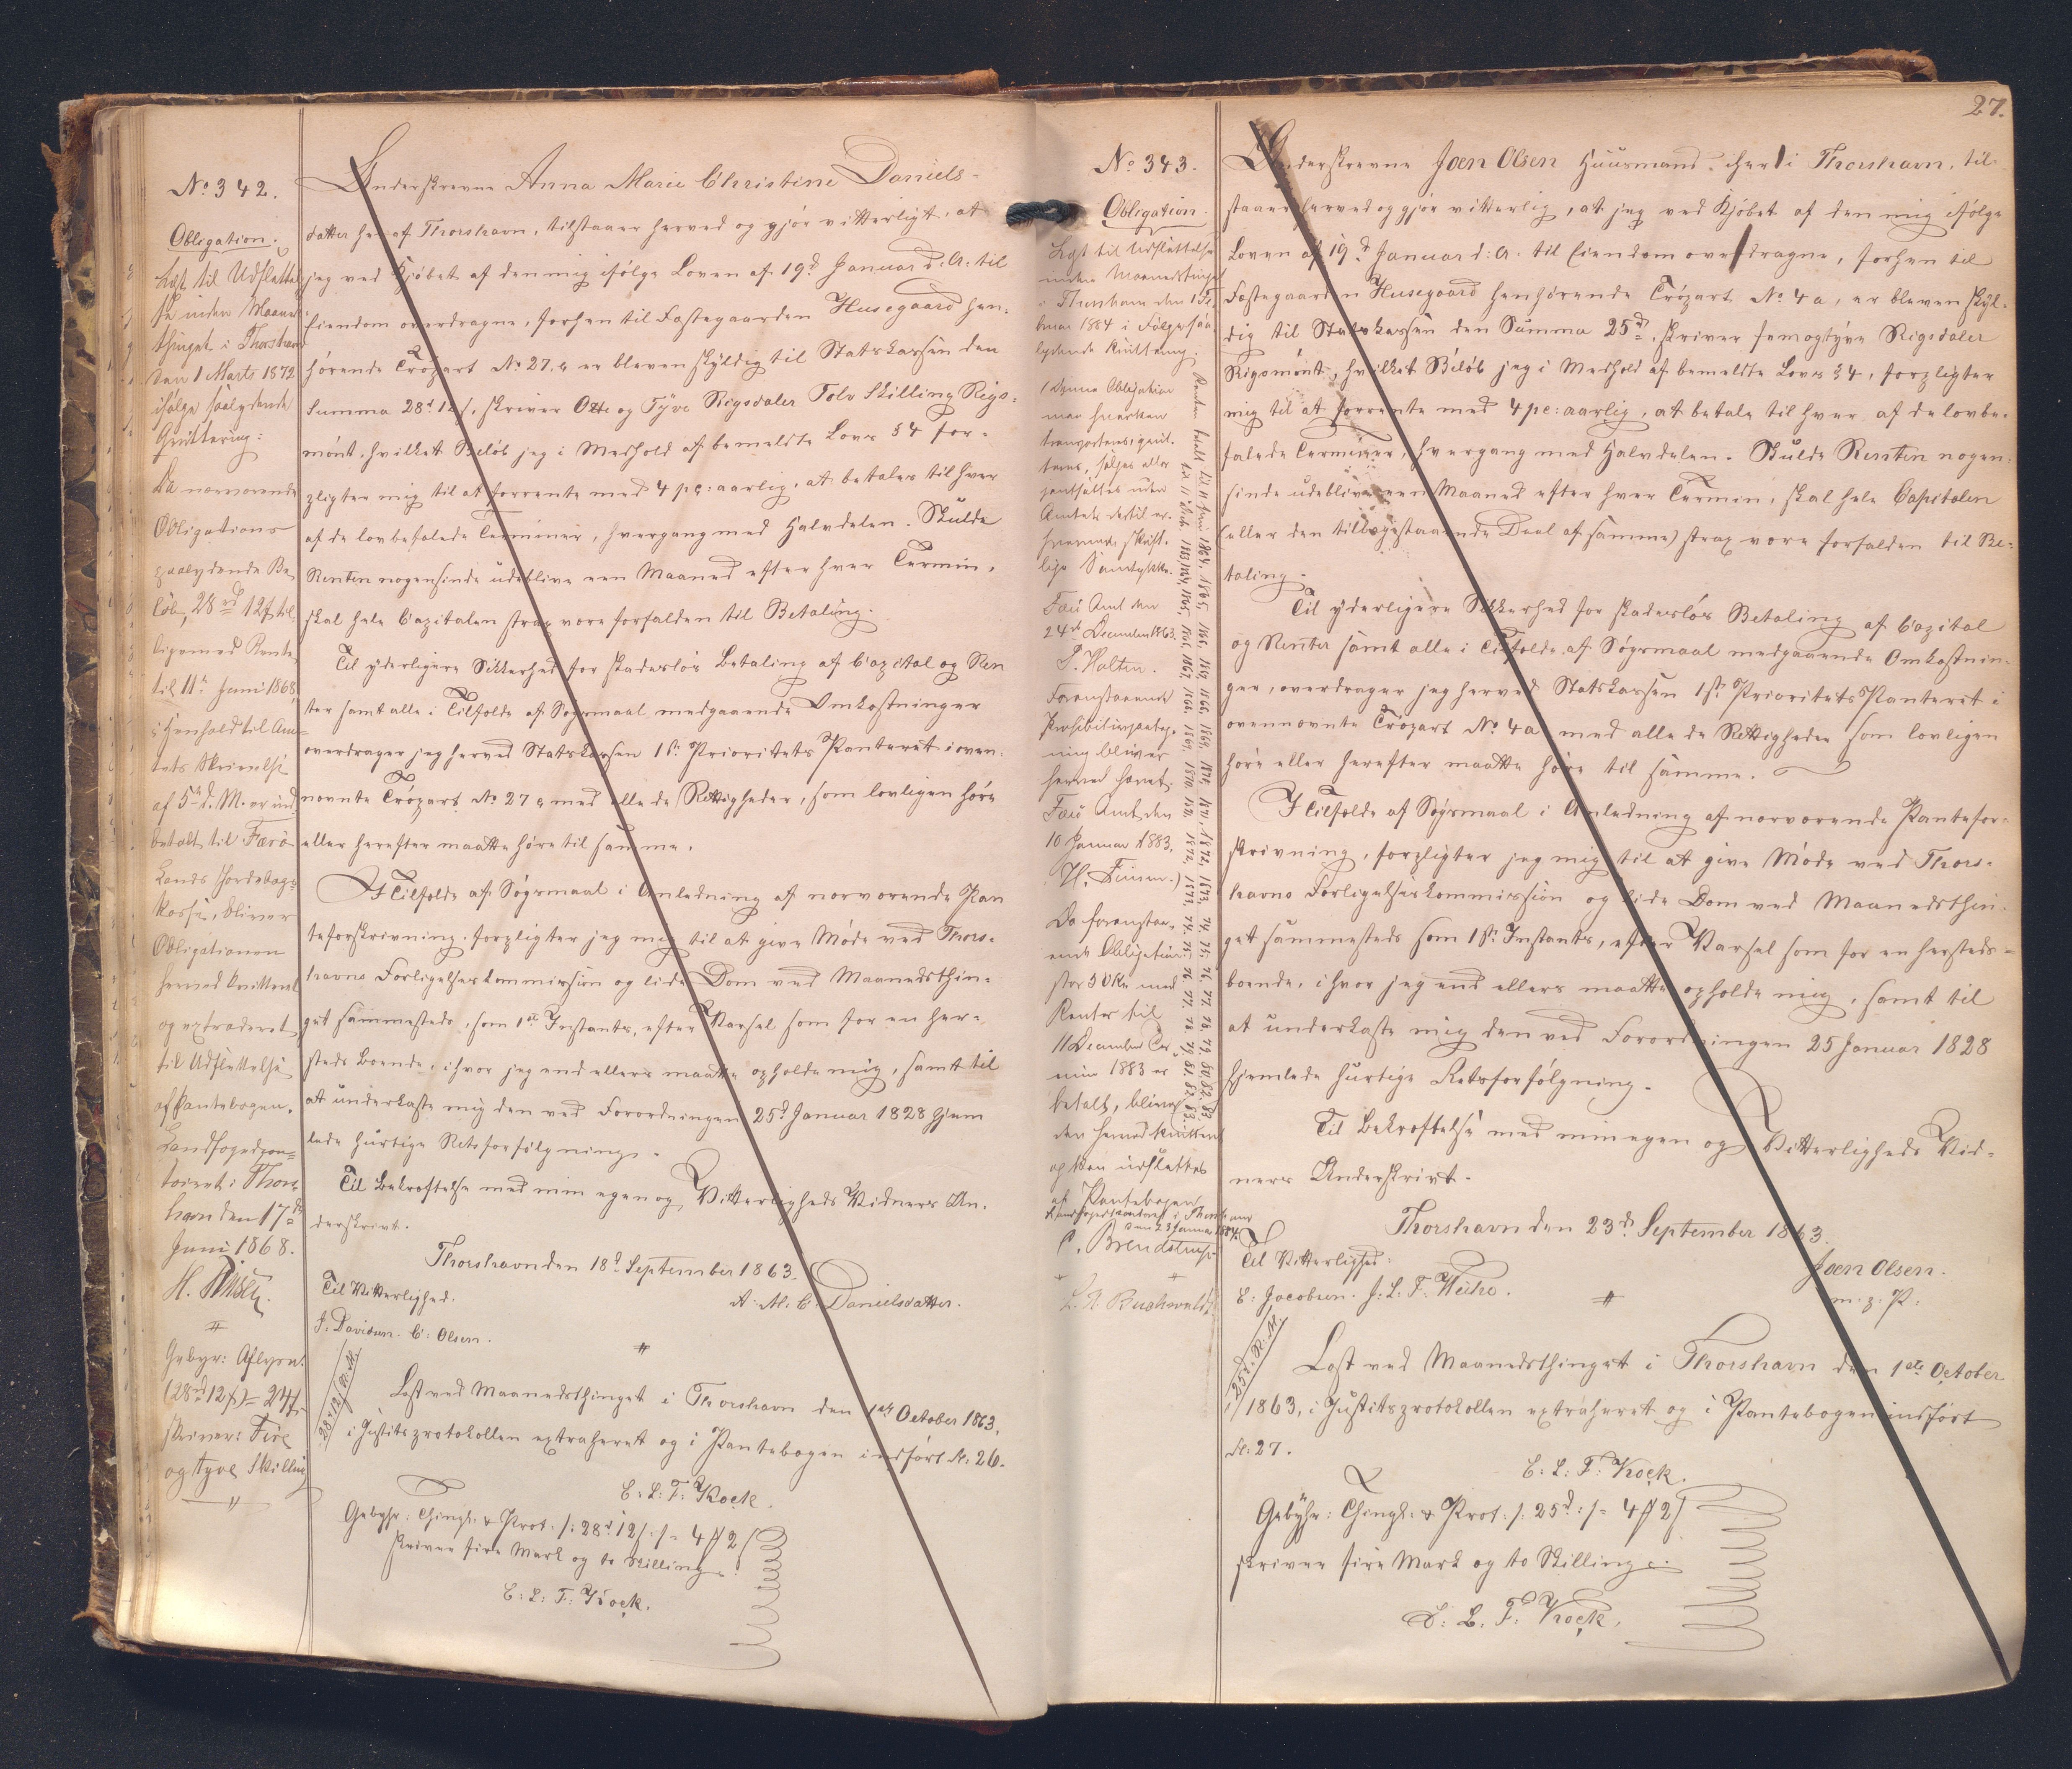 No 342.
Obligation.
Læst til Udslettel-
se inden Maaneds-
thinget i Thorshavn
den 1 Marts 1872
ifølge saalydende
Qvittering:
Da nærværende
Obligations
paalydende Be-
løb, 28 rd 12 s til-
ligemed Rente
til 11te Juni 1868,
i Henhold til Am-
tets Skrivelse
af 5te d. M. er ind-
betalt til Færø
Lands Jordebogs-
kasse, bliver
Obligationen
herved kvitteret
og extraderet
til Udslettelse
af Pantebogen.
Landfogedcon-
toiret i Thors-
havn den 17de
Juni 1868.
H. Finsen.
Gebyr: Aflysn.
(28 rd 12 s) = 24 s
skriver: Fire
og tyve Skilling
Underskrevne Anna Marie Christine Daniels-
datter her af Thorshavn, tilstaaer herved og gjør vitterligt, at
jeg ved Kjøbet af den mig ifølge Loven af 19d Januar d: A: til
Eiendom overdragne, forhen til Fæstegaarden Husegaard hen-
hørende Trøpart No 27, e er bleven skyldig til Statskassen den
Summa 28d 12 s, skriver Otte og Tyve Rigsdaler Tolv Skilling Rigs-
mønt, hvilket Beløb jeg i Medhold af bemeldte Lovs § 4 for-
pligter mig til at forrente med 4 pc: aarlig, at betales til hver
af de lovbefalede Terminer, hvergang med Halvdelen. Skulde
Renten nogensinde udeblive een Maaned efter hver Termin,
skal hele Capitalen strax være forfalden til Betaling.
Til yderligere Sikkerhed for skadesløs Betaling af Capital og Ren
ter samt alle i Tilfælde af Søgsmaal medgaaende Omkostninger
overdrager jeg herved Statskassen 1ste Prioritets Panteret i oven-
nævnte Trøpart No 27 e med alle de Rettigheder, som lovligen høre
eller herefter maatte høre til samme.
I Tilfælde af Søgsmaal i Anledning af nærværende Pan
teforskrivning, forpligter jeg mig til at give Møde ved Thors-
havns Forligelseskommission og lide Dom ved Maanedsthin-
get sammesteds, som 1ste Instants, efter Varsel som for en her-
steds Boende, ihvor jeg end ellers maatte opholde mig, samt til
at underkaste mig den ved Forordningen 25d Januar 1828 hjem
lede hurtige Retsforfølgning.
Til Bekræftelse med min egen og Vitterligheds Vidners Un-
derskrivt.
Thorshavn den 18d September 1863.
Til Vitterlighed.
A. M. C. Danielsdatter.
J. Davidsen. C: Olsen.
28 rd 12 s R. M.
Læst ved Maanedsthinget i Thorshavn den 1ste October 1863,
i Justitsprotokollen extraheret og i Pantebogen indført Fl: 26.
E: L: F: Kock.
Gebyhr: Thingl. & Prot. /: 28d 12 s :/ = 4 ℔ 2 s
skriver fire Mark og to Skilling.
E: L: F: Kock.
27.
No 343.
Obligation.
Læst til Udslettelse
inden Maanedsthinget
i Thorshavn den 1 Fe-
bruar 1884 i Følge saa-
lydende Kvittering:
(Denne Obligation
maa hverken
transporteres, qvit-
teres, sælges eller
pantsættes uden
Amtets dertil er-
hvervede skrift-
lige Samtykke.
Færø Amt den
24de December 1863.
P. Holten.
Foranstaaende
Prohibitivpaateg-
ning bliver
herved hævet.
Færø Amt, den
10 Januar 1883.
H. Finsen.)
Da foranstaa-
ende Obligation
stor 50 Kr med
Renter til
11 December Ter-
min 1883 er
betalt, bliver
den herved kvitteret
og kan udslettes
af Pantebogen
Landfogedcontoret i Thorshavn
den 23 Januar 1884.
C. Brendstrup.
L. A. Buchwaldt
Underskrevne Joen Olsen Huusmand her i Thorshavn, til-
staaer herved og gjør vitterlig, at jeg ved Kjøbet af den mig ifølge
Loven af 19d Januar d: A: til Eiendom overdragne, forhen til
Fæstegaarden Husegaard henhørende Trøpart No 4 a, er bleven skyl-
dig til Statskassen den Summa 25d, skriver femogtyve Rigsdaler
Rigsmønt, hvilket Beløb jeg i Medhold af bemeldte Lovs § 4, forpligter
mig til at forrente med 4 pc: aarlig, at betale til hver af de lovbe-
falede Terminer, hvergang med Halvdelen. Skulde Renten nogen-
sinde udeblive een Maaned efter hver Termin, skal hele Capitalen
(eller den tilbagestaaende Deel af samme) strax være forfalden til Be-
taling.
Til yderligere Sikkerhed for skadesløs Betaling af Capital
og Renter samt alle i Tilfælde af Søgsmaal medgaaende Omkostnin-
ger, overdrager jeg herved Statskassen 1ste Prioritets Panteret i
ovennævnte Trøpart No 4 a med alle de Rettigheder som lovligen
høre eller herefter maatte høre til samme.
I Tilfælde af Søgsmaal i Anledning af nærværende Pantefor-
skrivning, forpligter jeg mig til at give Møde ved Thors-
havns Forligelseskommission og lide Dom ved Maanedsthin-
get sammesteds som 1ste Instants, efter Varsel som for en hersteds-
boende, ihvor jeg end ellers maatte opholde mig, samt til
at underkaste mig den ved Forordningen 25 Januar 1828
hjemlede hurtige Retsforfølgning.
Til Bekræftelse med min egen og Vitterligheds Vid-
ners Underskrivt.
Thorshavn den 23d September 1863.
Til Vitterlighed:
Joen Olsen.
E: Jacobsen. J: L: F. Weihe.
m: p: P:
25d R. M.
Læst ved Maanedsthinget i Thorshavn den 1ste October
1863, i Justitsprotokollen extraheret og i Pantebogen indført
Fl: 27.
E: L: F: Kock.
Gebyhr: Thingl. & Prot: /: 25d :/ = 4 ℔ 2 s
skriver fire Mark og to Skilling.
E: L: F: Kock.